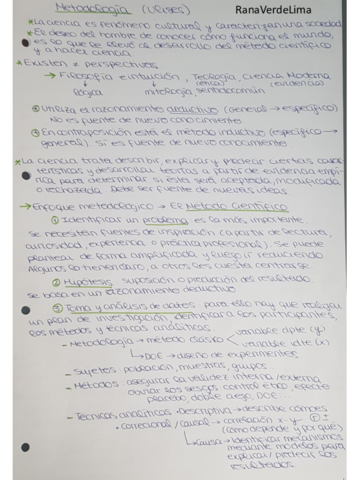 Metodología (Clases) RanaVerdeLima
* La ciencia es fenómeno cultural y caracterizan una sociedad
* Es deseo del hombre de conocer cómo funciona el mundo,
es lo que se llevó al desarrollo del método científico
y a hacer ciencia.
* Existen ≠ perspectivas,
→ Filosofía e intuición, Teología, Ciencia Moderna
(evidencias)
lógica mitología sentido común
Utiliza el razonamiento deductivo (General → específico)
No es fuente de nuevo conocimiento
En contraposición está el método inductivo (específico →
general). Sí es fuente de nuevo conocimiento
* La ciencia trata describir, explicar y predecir ciertas
y desarrollar teorías a partir de evidencia empí-
rica, para determinar si ésta será aceptada, modificada
o rechazada. Debe ser fuente de nuevas ideas
→ Enfoque metodológico → El Método Científico
① Identificar un problema es lo más importante.
Se necesitan fuentes de inspiración (a partir de lectura,
curiosidad, experiencia o práctica profesional). Se puede
plantear de forma amplificada y luego ir reduciendo
Algunos lo tienen claro, a otros les cuesta centrarse.
② Hipótesis: suposición o predicción del resultado
se basa en un razonamiento deductivo
③ Toma y análisis de datos: para ello hay que realizar
un plan de investigación identificar a los participantes,
los métodos y técnicas analíticas.
variable dpte (y)
- Metodología → método clásico
variable dte (x)
↳ DOE → diseño de experimentos
- Sujetos: población, muestras, grupos
- Métodos: asegurar la validez interna/externa
obviar los sesgos control efecto
placebo, doble ciego, DOE...
- Técnicas analíticas • Descriptiva → describe
• Correccional/causal → correlación x-y ⊕ -
(cómo depende y por qué)
↳ Causa → Identificar mecanismos
mediante modelos para
explicar/predecir los
resultados